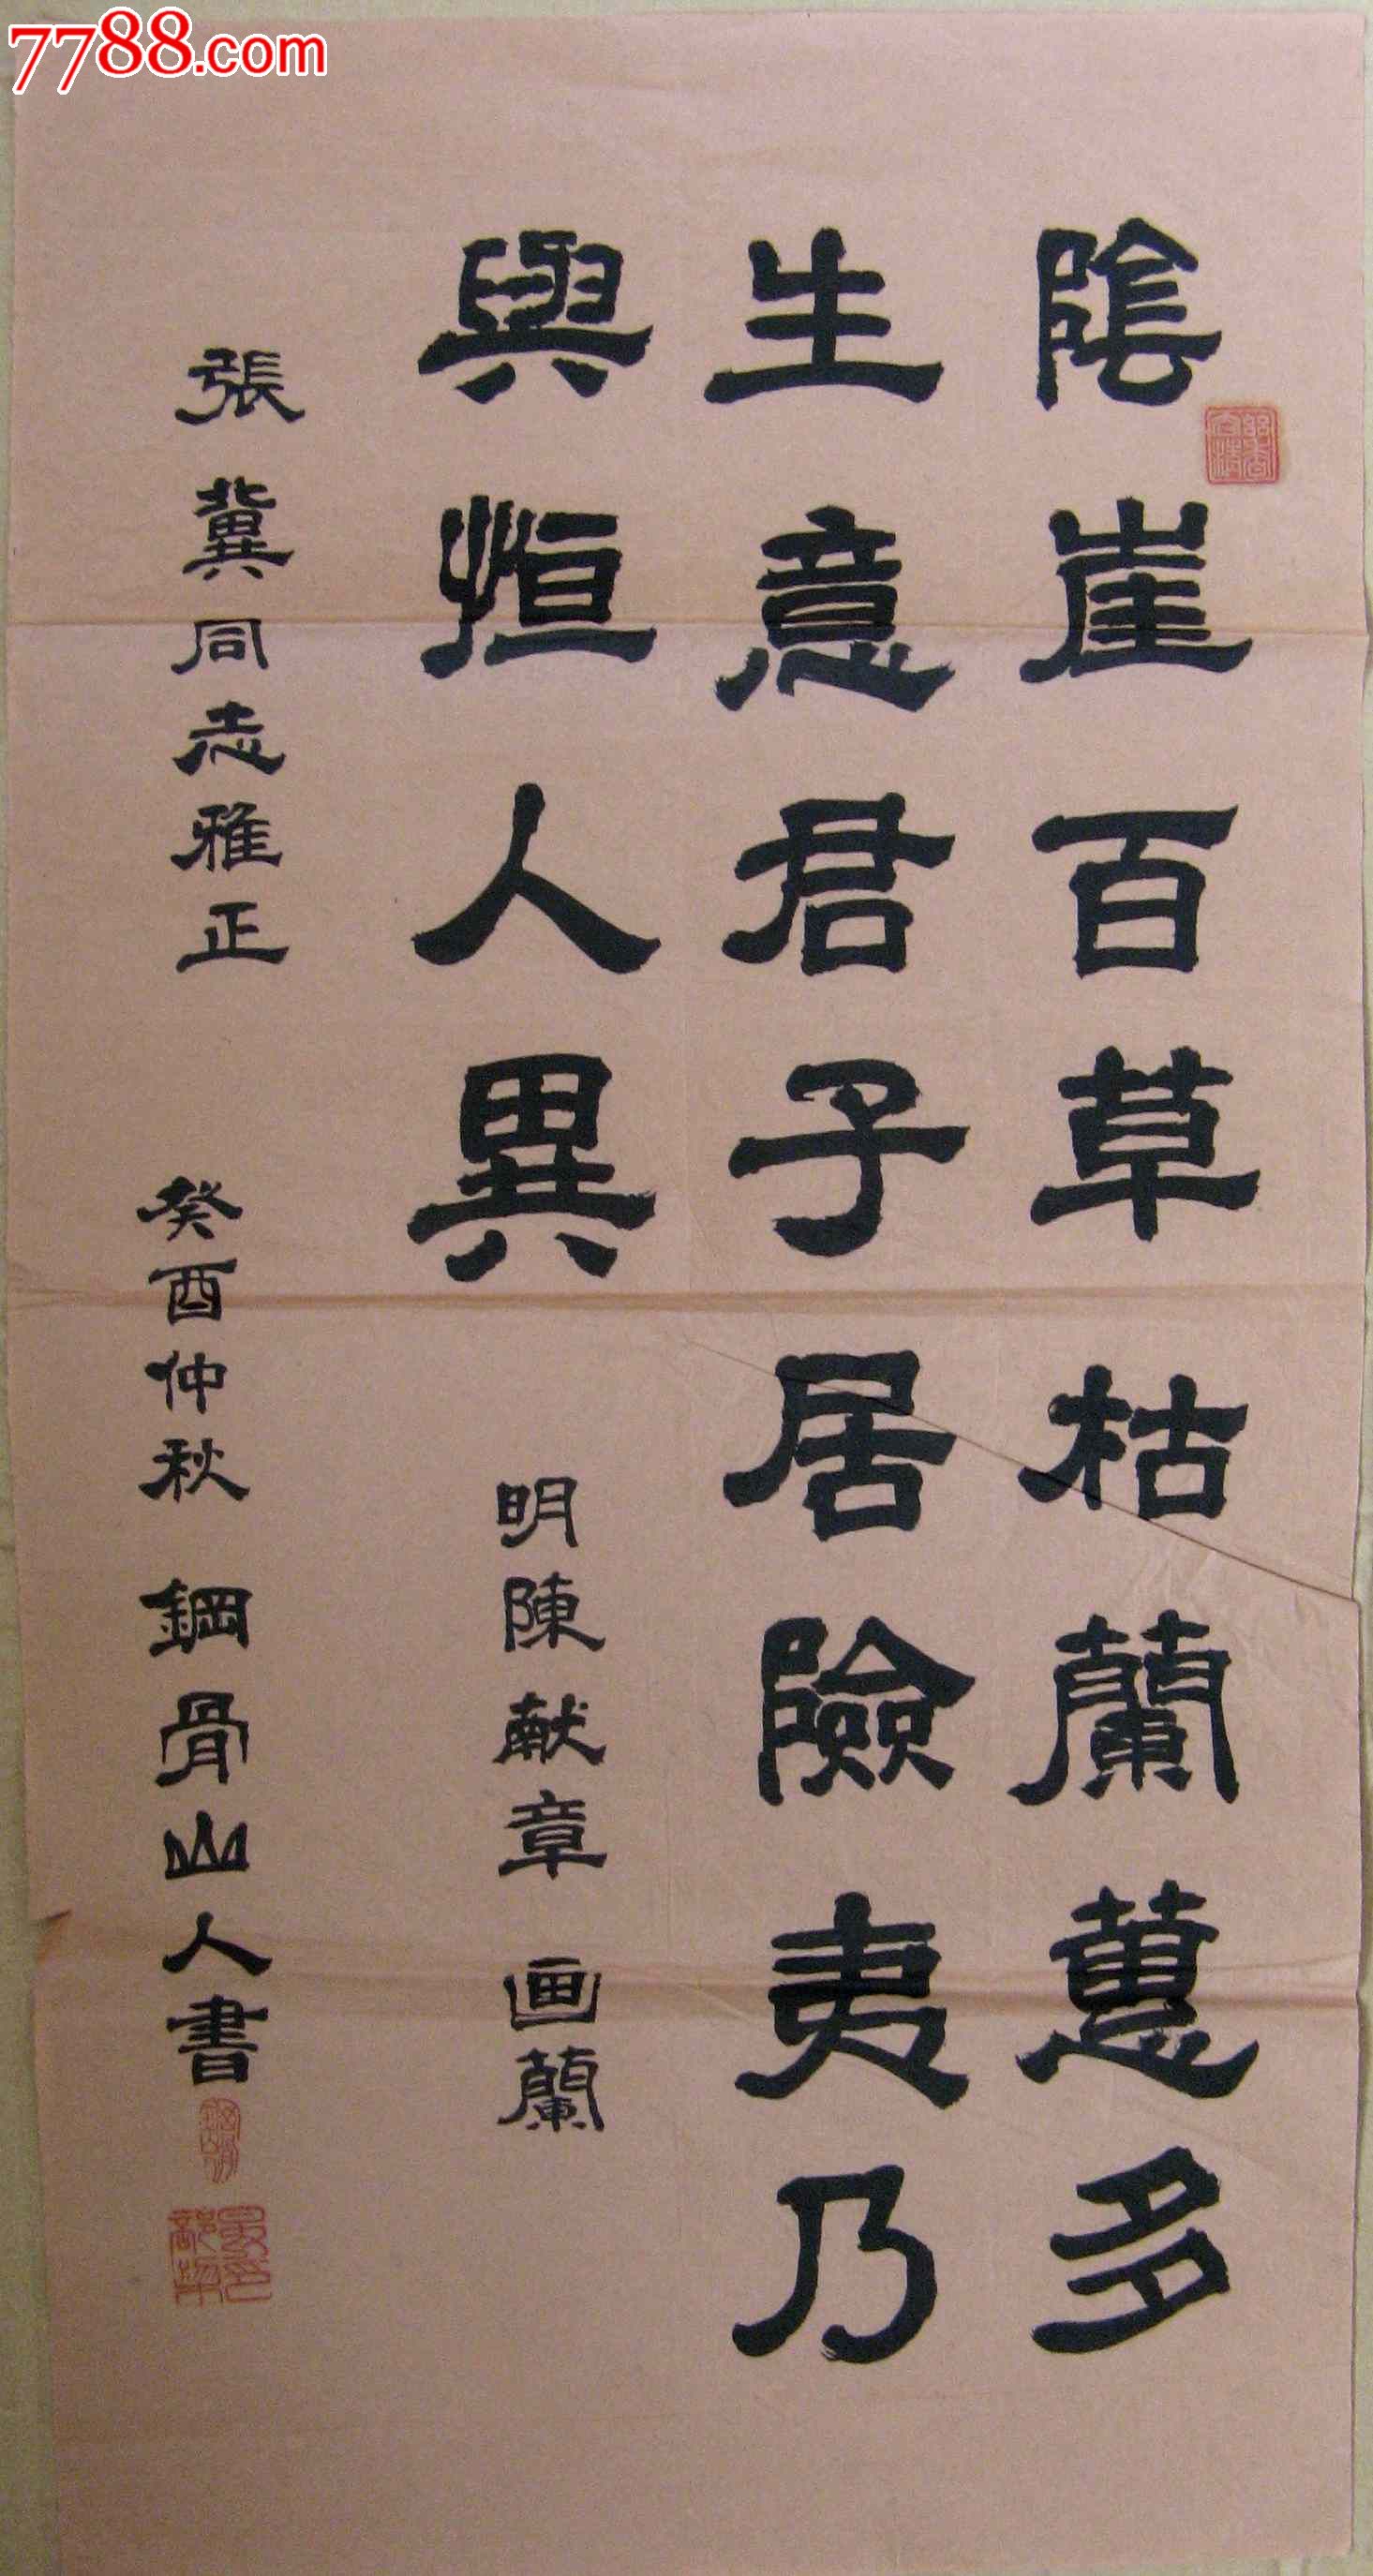 7788.com
陰崖百草枯蘭蕙多
生意君子居險夷乃
與恒人異
明陳献章画蘭
張冀同志雅正
癸酉仲秋鋼骨山人書